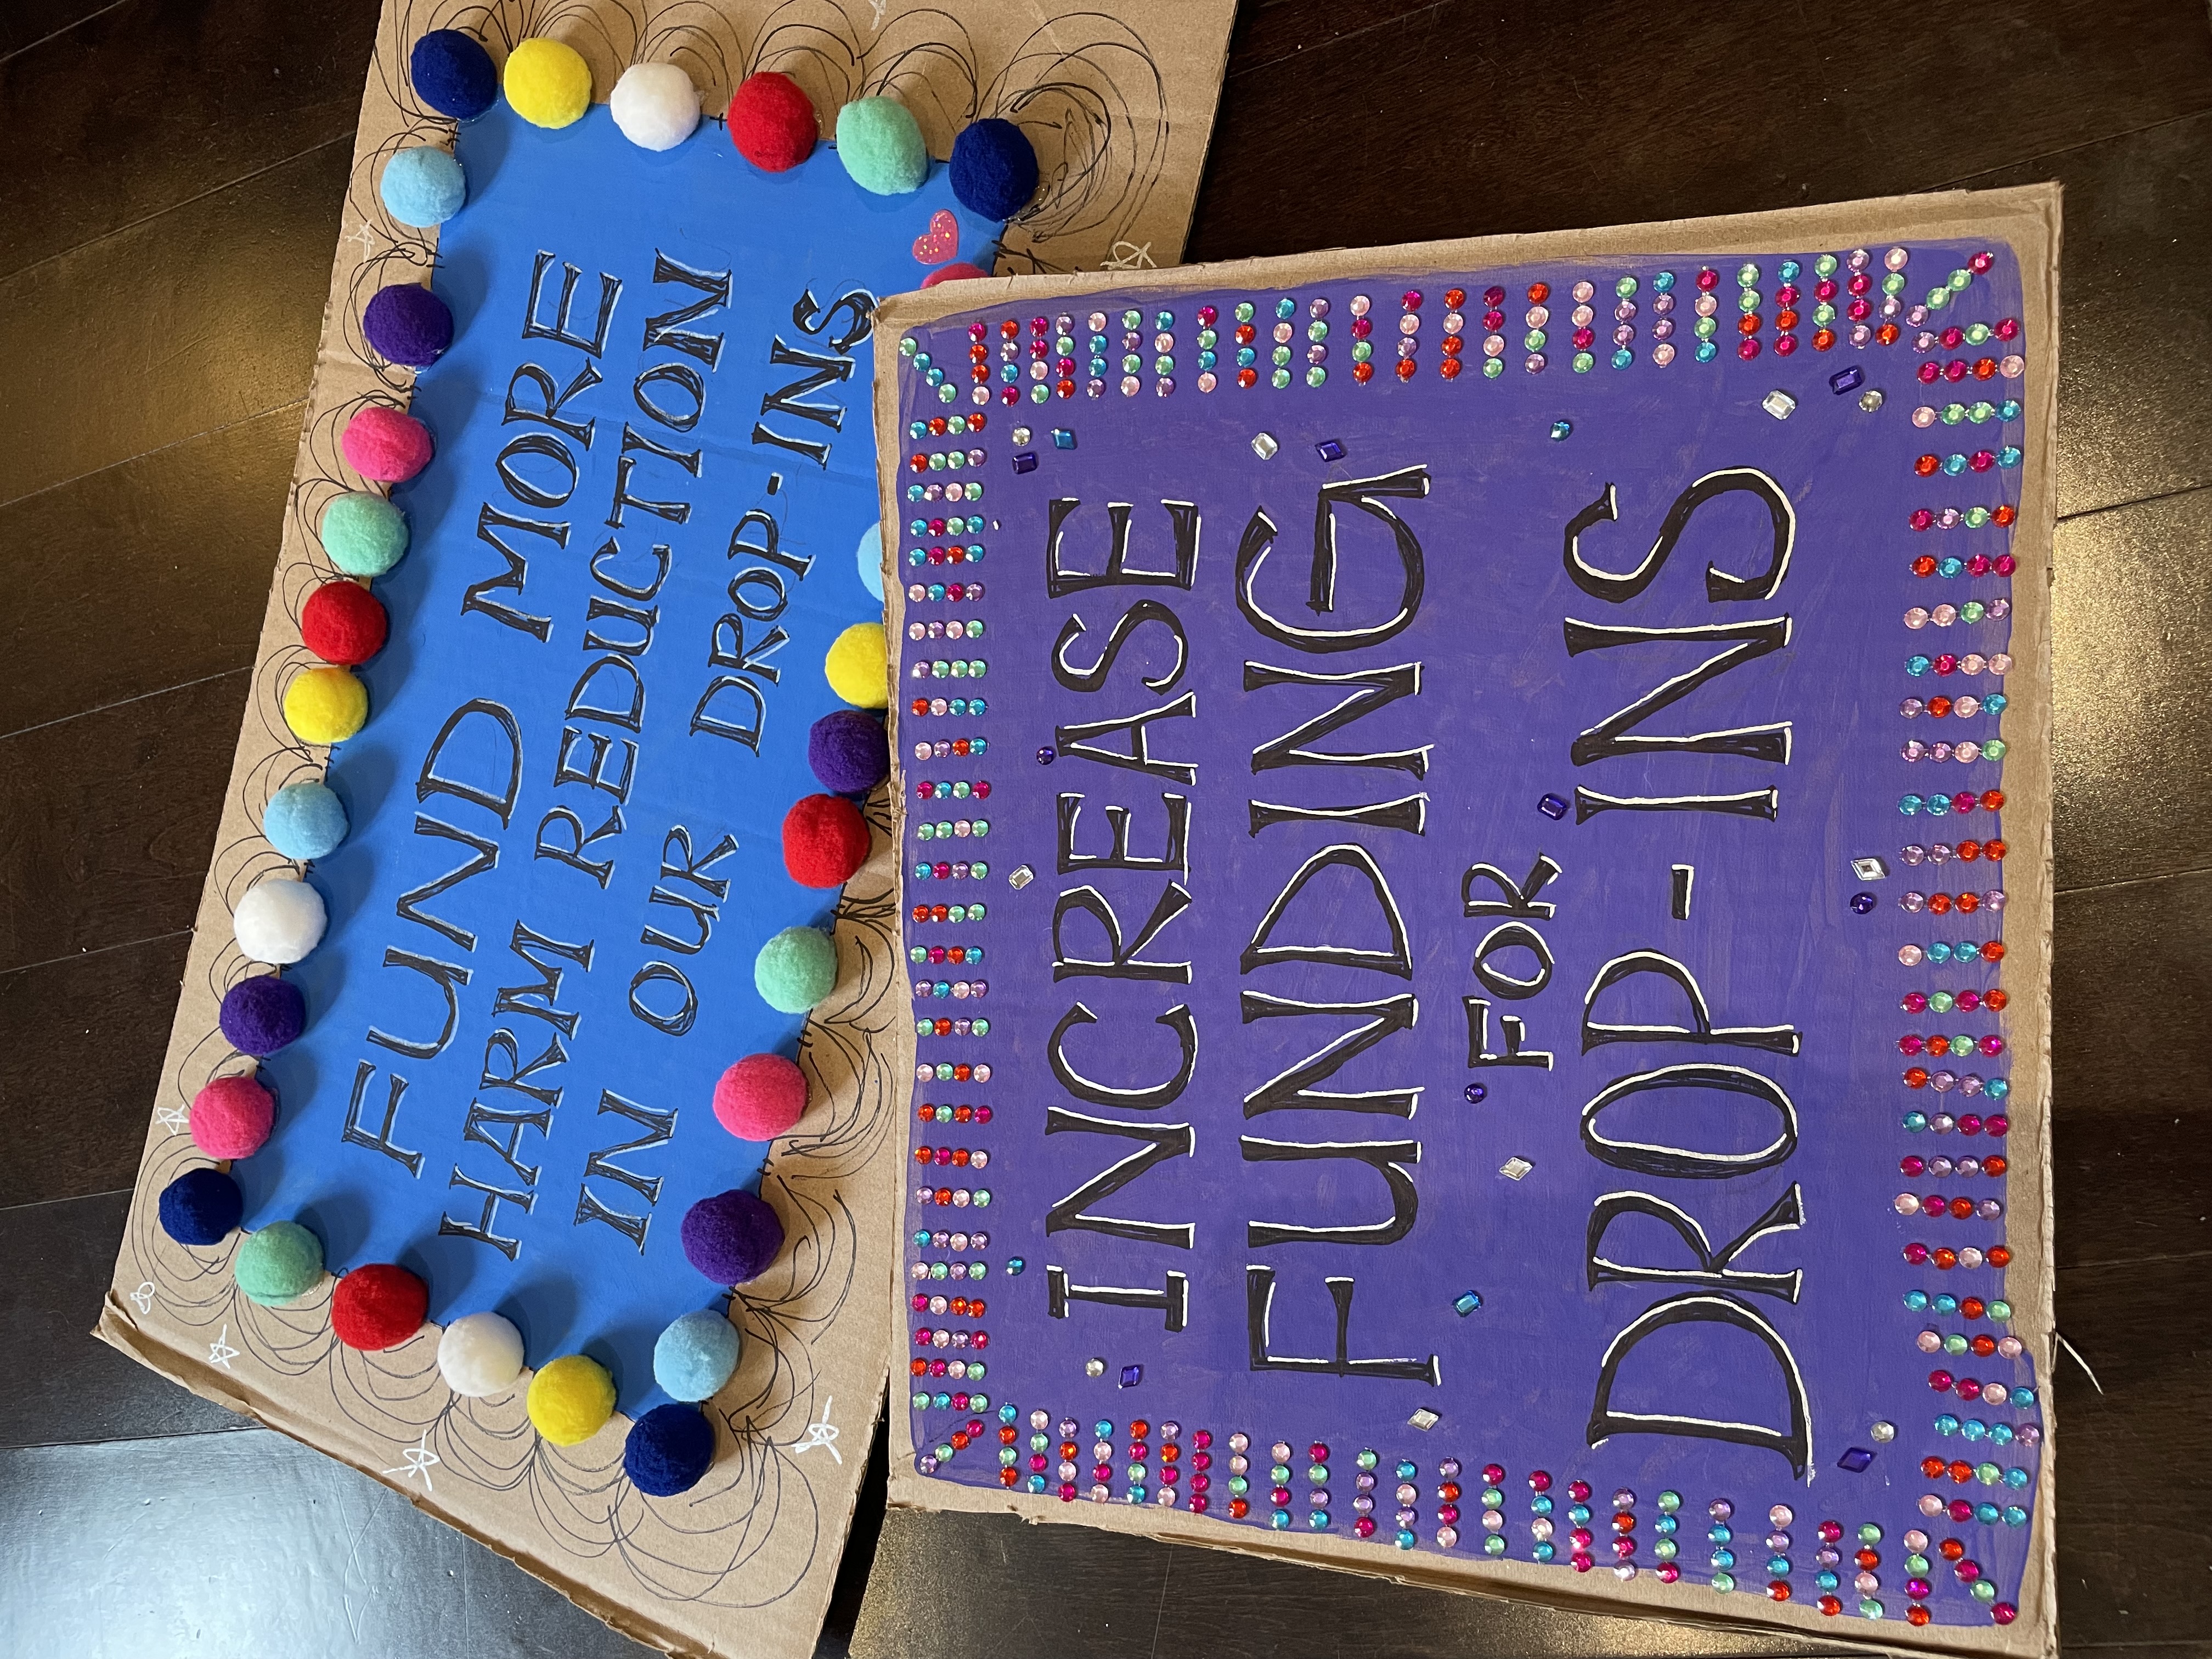 FUND MORE
HARM REDUCTION
IN OUR DROP-INS
INCREASE
FUNDING
FOR
DROP-INS